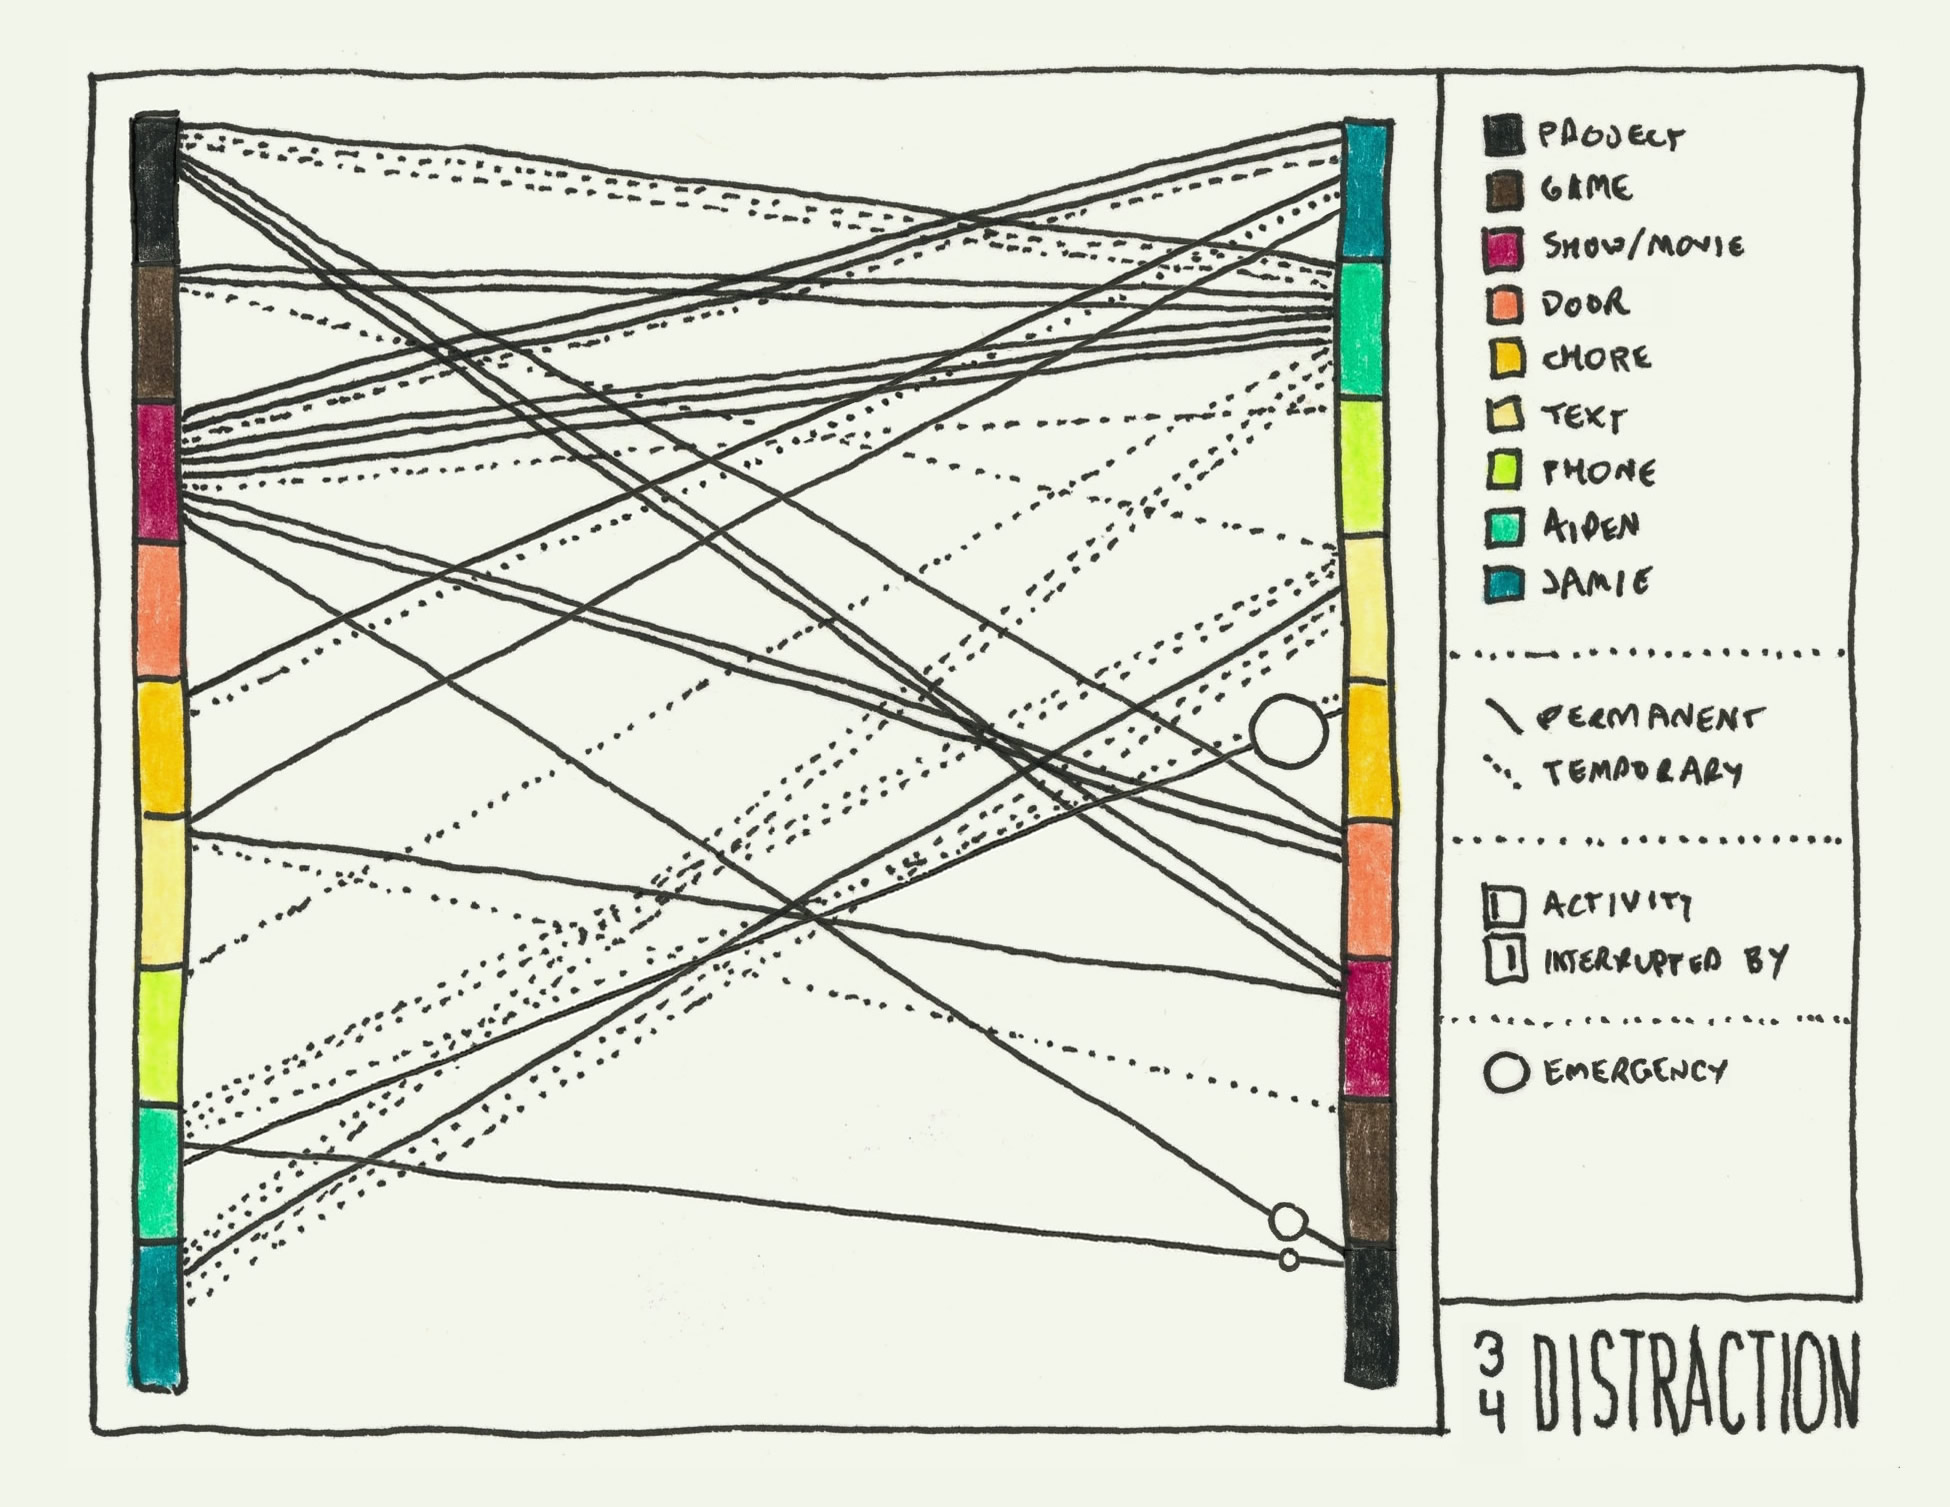 PROJECT
GAME
SHOW/MOVIE
DOOR
CHORE
TEXT
PHONE
AIDEN
JAMIE
PERMANENT
TEMPORARY
ACTIVITY
INTERRUPTED BY
EMERGENCY
34 DISTRACTION